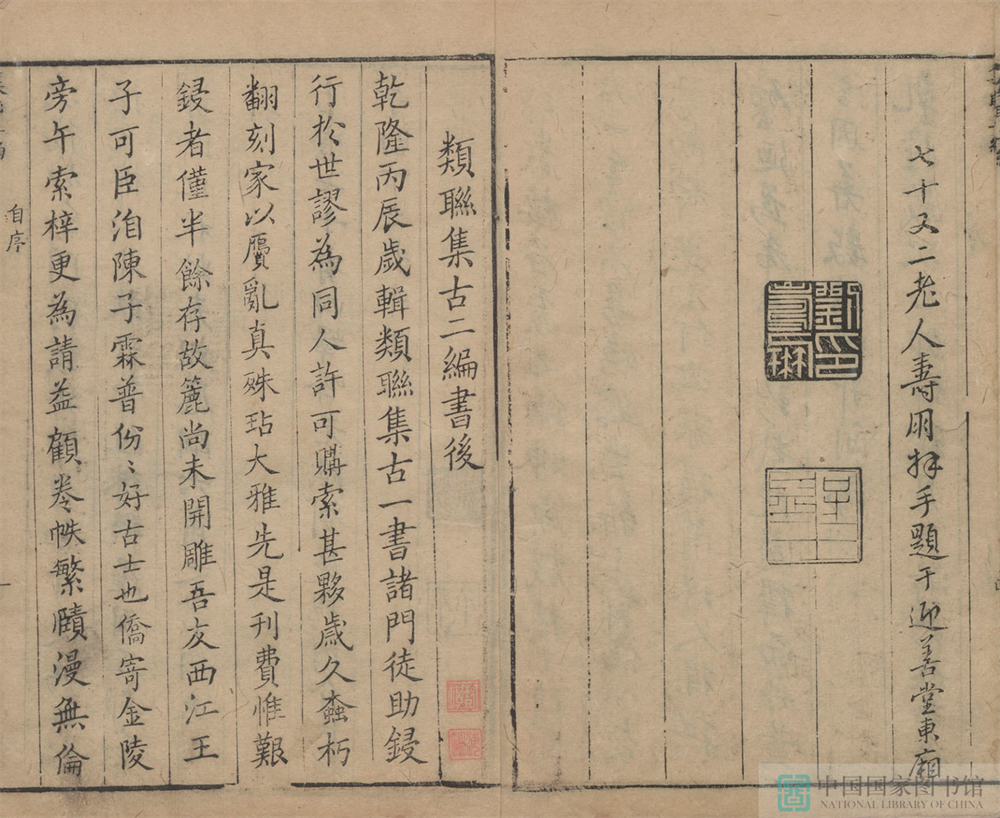 七十又二老人壽朋拜手題于迎善堂東廂
類聯集古二編書後
乾隆丙辰歲輯類聯集古一書諸門徒助鋟
行於世謬為同人許可購索甚夥歲久蠹朽
翻刻家以贗亂真殊玷大雅先是刊費惟艱
鋟者僅半餘存故簏尚未開雕吾友西江王
子可臣洎陳子霖普份〻好古士也僑寄金陵
旁午索梓更為請益顧卷帙繁賾漫無倫
自序
一
中国国家图书馆
NATIONAL LIBRARY OF CHINA